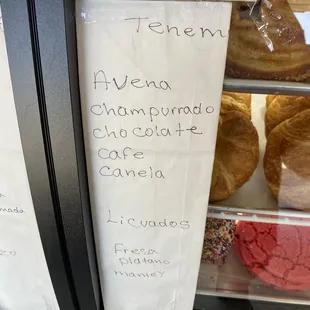 Tenem
Avena
champurrado
chocolate
cafe
canela
Licuados
Fresa
platano
mamey